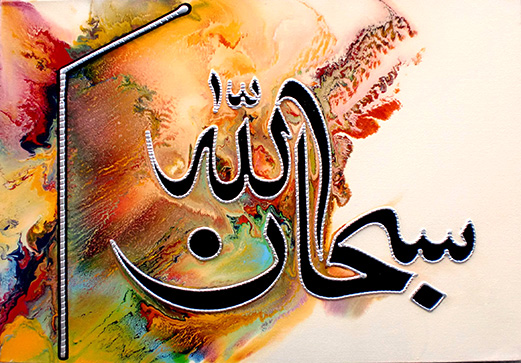 سبحان اللّٰه